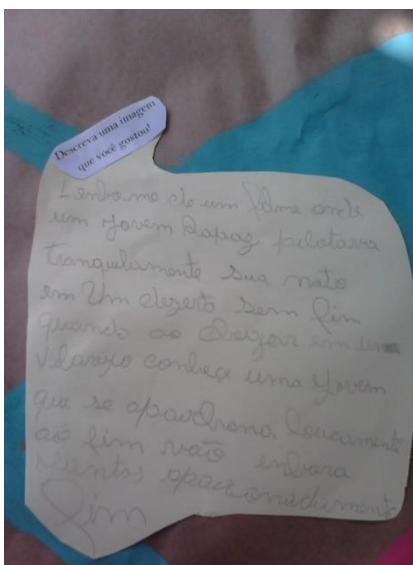 Descreva uma imagem
que você gostou!
Lembro me de um filme onde
um Jovem Rapaz pilotava
tranquilamente sua moto
em Um dezerto sem fim
quando ao chegar em um
vilarejo conheçe uma Jovem
que se apaixona loucamente
ao fim vão embora
juntos apaixonadamente
Fim